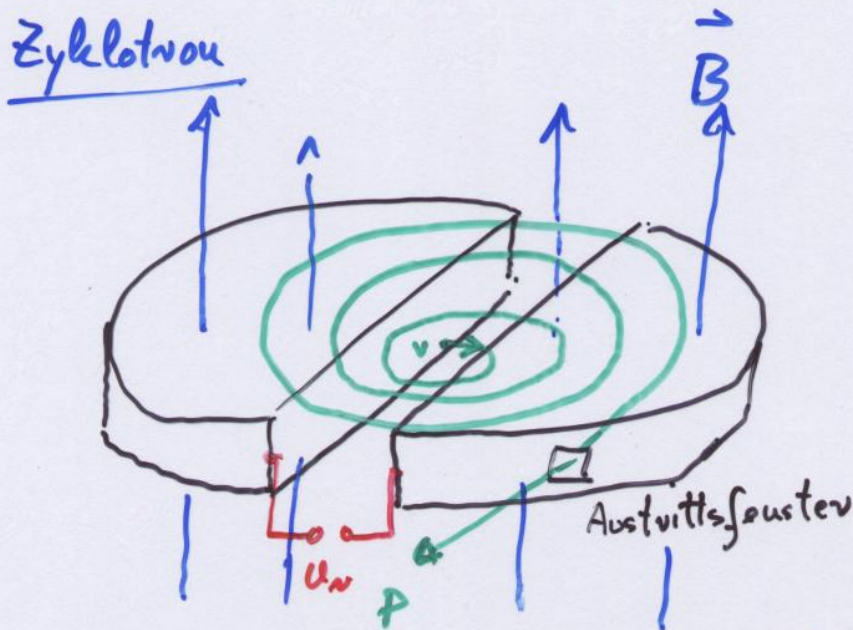 Zyklotron
B
v
Austrittsfenster
U~
p